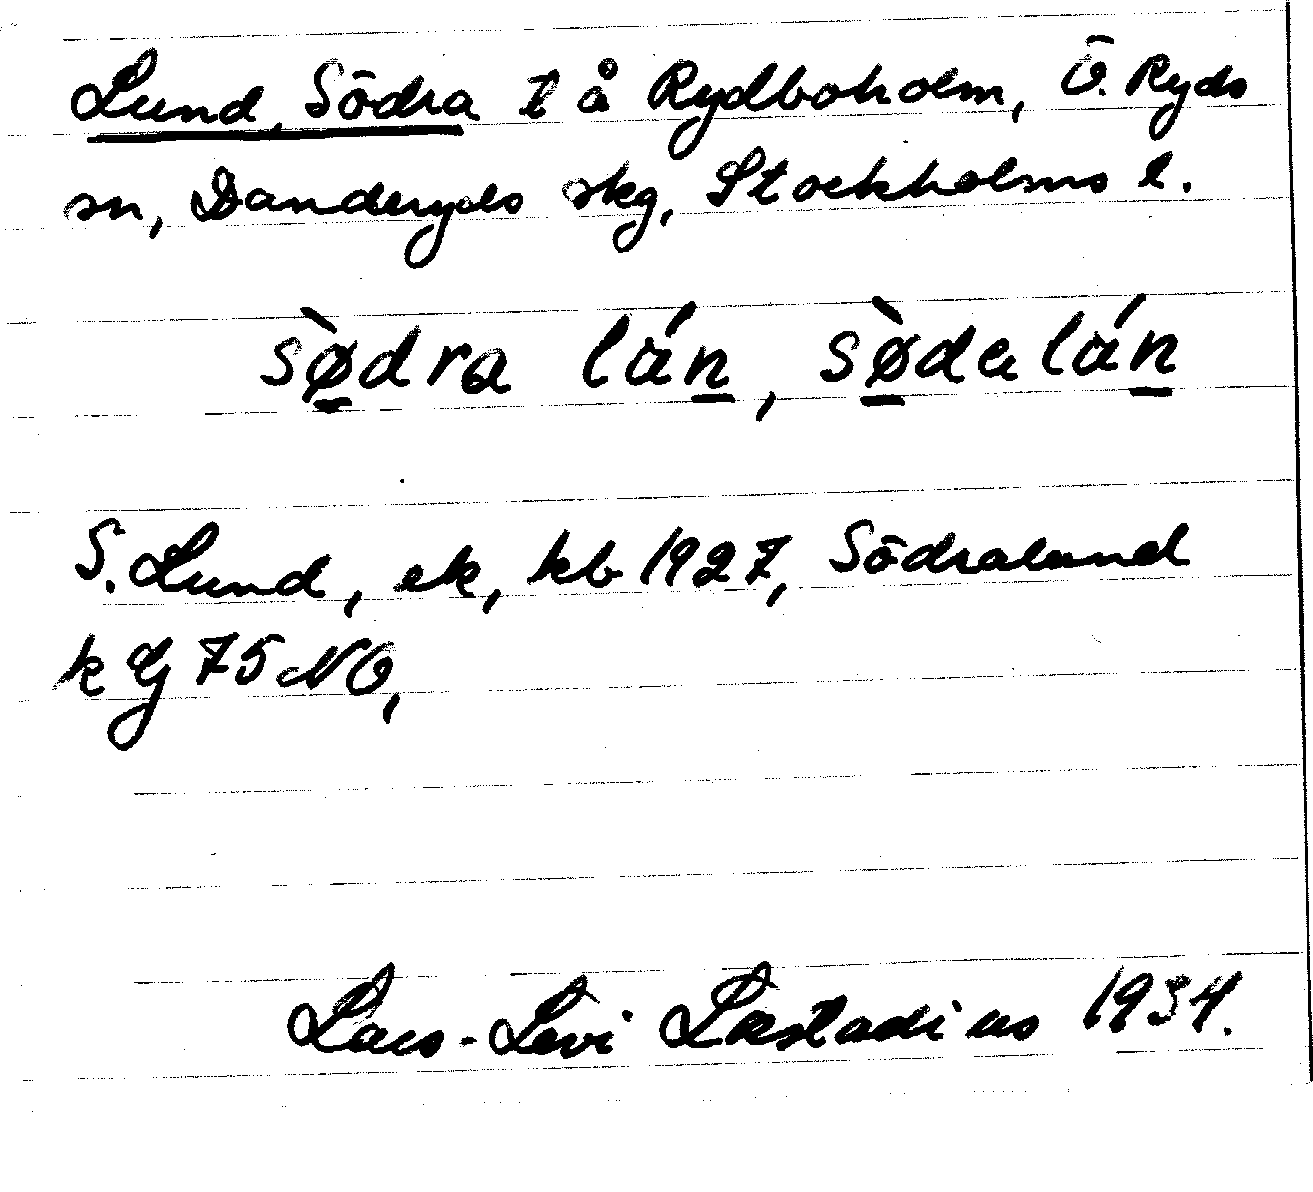 Lund, Södra t å Rydboholm, Ö. Ryds
sn, Danderyds skg, Stockholms l.
sø̀dra lán, sø̀da lán
S. Lund, ek, kb 1927, Södralund
k Gj 75 NO,
Lars-Levi Læstadius 1934.